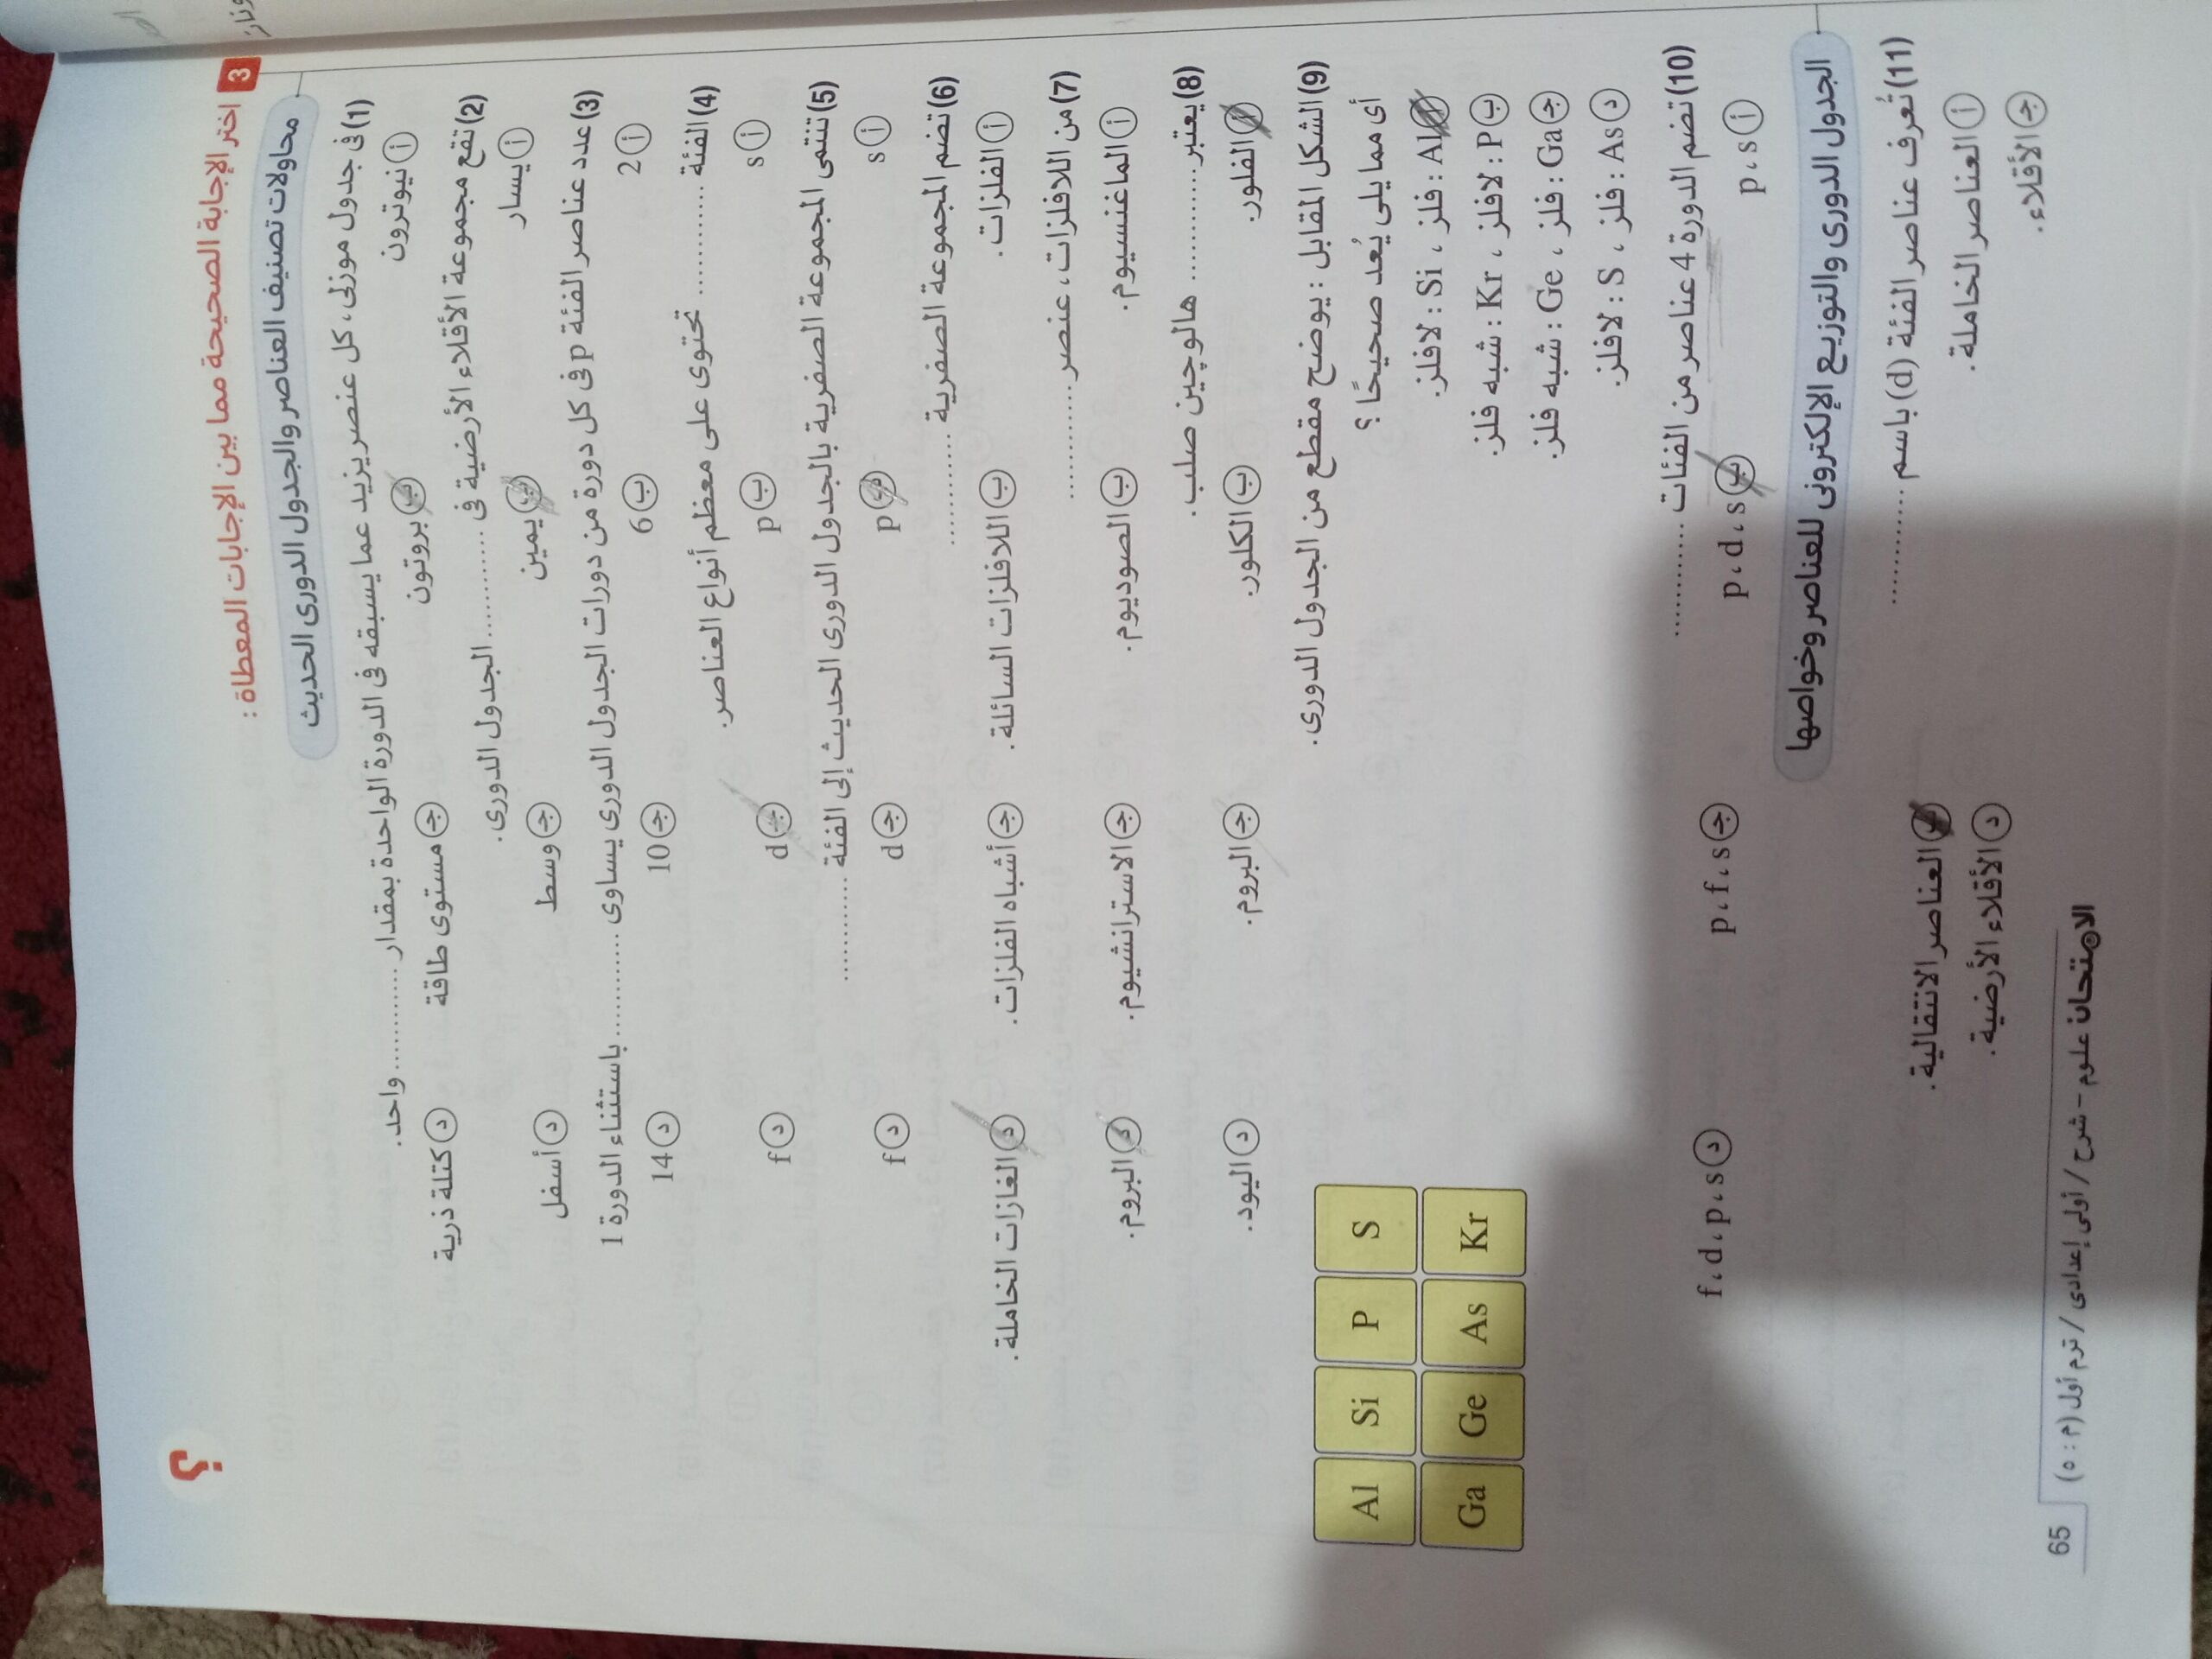 3 اختر الإجابة الصحيحة مما بين الإجابات المعطاة :
محاولات تصنيف العناصر والجدول الدورى الحديث
(1) فى جدول موزلى، كل عنصر يزيد عما يسبقه فى الدورة الواحدة بمقدار ............ واحد.
أ نيوترون ب بروتون ج مستوى طاقة د كتلة ذرية
(2) تقع مجموعة الأقلاء الأرضية فى ............ الجدول الدورى.
أ يسار ب يمين ج وسط د أسفل
(3) عدد عناصر الفئة p فى كل دورة من دورات الجدول الدورى يساوى ............ باستثناء الدورة 1
أ 2 ب 6 ج 10 د 14
(4) الفئة ............ تحتوى على معظم أنواع العناصر.
أ s ب p ج d د f
(5) تنتمى المجموعة الصفرية بالجدول الدورى الحديث إلى الفئة ............
أ s ب p ج d د f
(6) تضم المجموعة الصفرية ............
أ الفلزات. ب اللافلزات السائلة. ج أشباه الفلزات. د الغازات الخاملة.
(7) من اللافلزات، عنصر ............
أ الماغنسيوم. ب الصوديوم. ج الاسترانشيوم. د البروم.
(8) يعتبر ............ هالوچين صلب.
أ الفلور. ب الكلور. ج البروم. د اليود.
(9) الشكل المقابل : يوضح مقطع من الجدول الدورى.
أى مما يلى يُعد صحيحًا ؟
أ Al : فلز ، Si : لافلز.
ب P : لافلز ، Kr : شبه فلز.
ج Ga : فلز ، Ge : شبه فلز.
د As : فلز ، S : لافلز.
Al Si P S
Ga Ge As Kr
(10) تضم الدورة 4 عناصر من الفئات ............
أ p ، s ب p ، d ، s ج p ، f ، s د f ، d ، p ، s
الجدول الدورى والتوزيع الإلكترونى للعناصر وخواصها
(11) تُعرف عناصر الفئة (d) باسم ............
أ العناصر الخاملة. ب العناصر الانتقالية.
ج الأقلاء. د الأقلاء الأرضية.
الامتحان علوم - شرح / أولى إعدادى / ترم أول (م : ٥) 65